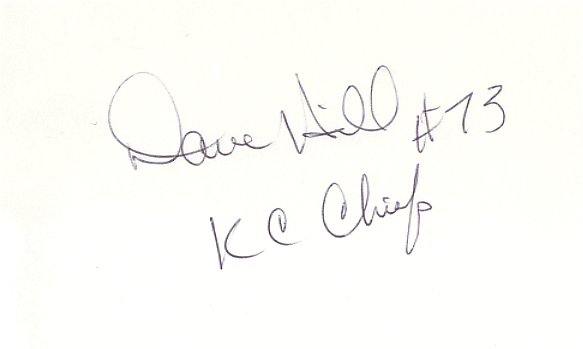 Dave Hill #73
KC Chiefs